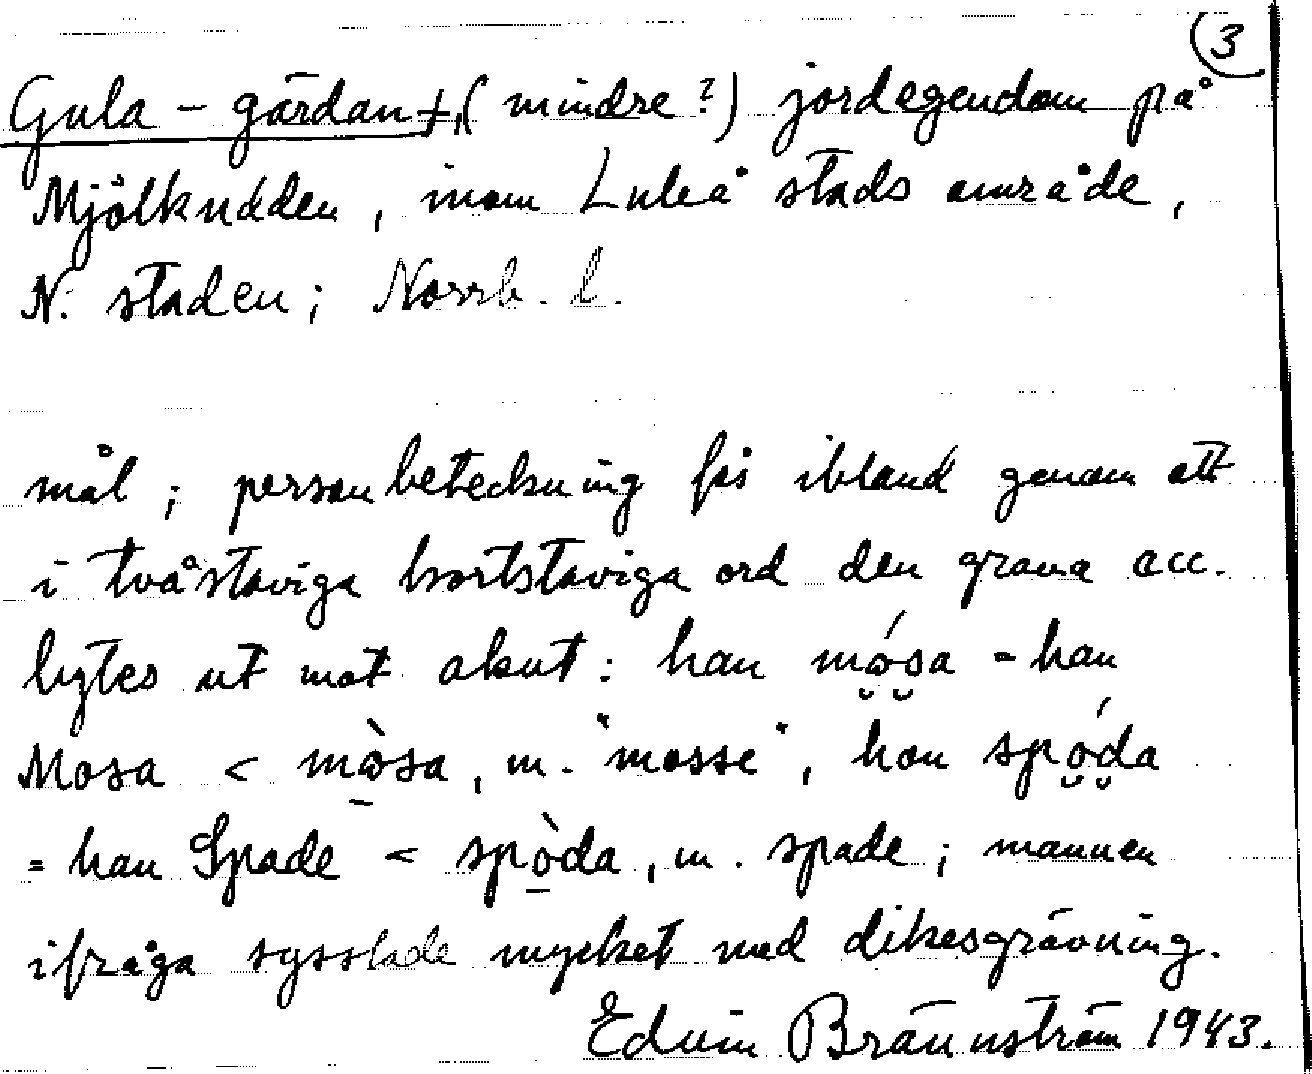 3
Gula-gärdan +, (mindre?) jordegendom på
Mjölkudden, inom Luleå stads område,
N. staden; Norrb. l.
mål; personbeteckning fås ibland genom att
i tvåstaviga kortstaviga ord den grava acc.
bytes ut mot akut: han mǻsa = han
Mosa < mòsa, m. "mosse", han spó̯da
= han Spade < spò̲da, m. spade; mannen
ifråga sysslade mycket med dikesgrävning.
Edvin Brännström 1943.